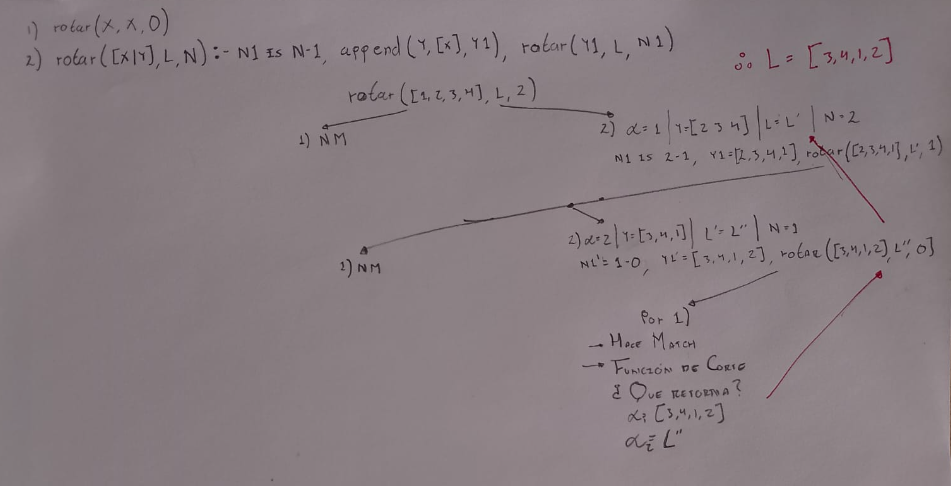 1) rotar(X, X, 0)
2) rotar([X|Y], L, N) :- N1 Is N-1, append(Y, [X], Y1), rotar(Y1, L, N1)
∴ L = [3,4,1,2]
rotar([1,2,3,4], L, 2)
1) NM
2) α = 1 | Y=[2 3 4] | L = L' | N = 2
N1 IS 2-1, Y1=[2,3,4,1], rotar([2,3,4,1], L', 1)
1) NM
2) α=2 | Y=[3,4,1] | L'= L'' | N = 1
N1'= 1-0, Y1'=[3,4,1,2], rotar([3,4,1,2], L'', 0]
Por 1)
→ Hace Match
→ Función de Corte
¿ Que retorna?
α: [3,4,1,2]
L''